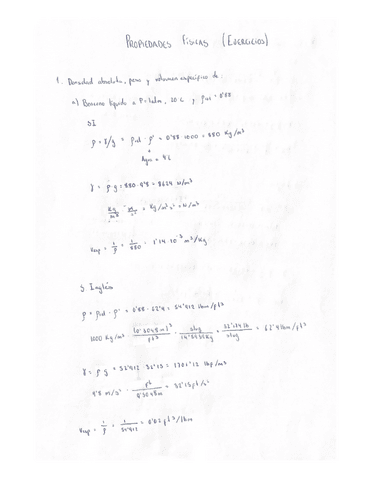 PROPIEDADES FÍSICAS (EJERCICIOS)
1. Densidad absoluta, peso y volumen específico de:
a) Benceno líquido a P=1atm, 20ºC y ρrel = 0'88
SI
ρ = ρ' = 0'88 · 1000 = 880 Kg/m³
Agua a 4ºC
γ = ρ g = 880 · 9'8 = 8624 N/m³
Kg/m³ · m/s² = Kg/m² s² = N/m³
Vesp = 1/ρ = 1/880 = 1'14 · 10⁻³ m³/Kg
S. Inglés
ρ = ρrel · ρ' = 0'88 · 62'4 = 54'912 lbm/ft³
1000 Kg/m³ · (0'3048m)³/ft³ · slug/14'5939Kg · 32'174 lb/slug = 62'4 lbm/ft³
γ = ρ g = 32'15 = lbf/m³
9'8 m/s² · ft/0'3048m = 32'15 ft/s²
Vesp = 1/ρ = 1/54'912 = 0'02 ft³/lbm